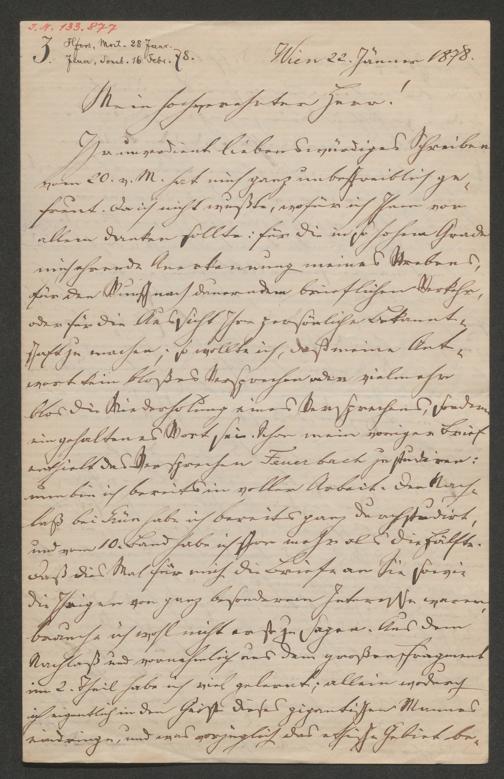 J.N. 133.877
3.
Wien 22. Jänner 1878.
Mein hochverehrter Herr!
Ihr unverdient liebenswürdiges Schreiben
vom 20. v. M. hat mich ganz unbeschreiblich ge-
freut. Da ich nicht wußte, wofür ich Ihnen vor
allem danken sollte: für die in so hohem Grade
mich ehrende Anerkennung meines Strebens,
für den Wunsch nach dauerndem brieflichen Verkehr,
oder für die Aussicht Ihre persönliche Bekannt-
schaft zu machen; so wollte ich, daß meine Ant-
wort kein bloßes Versprechen oder vielmehr
blos die Wiederholung eines Versprechens, sondern
ein gehaltenes Wort sei. Schon mein voriger Brief
enthielt das Versprechen Feuerbach zu studiren:
nun bin ich bereits in voller Arbeit. Den Nach-
laß bei Grün habe ich bereits ganz durchstudirt,
und vom 10. Band habe ich schon mehr als die Hälfte.
Daß dies Mal für mich die Briefe an Sie sowie
die Ihrigen von ganz besonderem Interesse waren,
brauche ich wohl nicht erst zu sagen. Aus dem
Nachlaß und vornehmlich aus dem großen Fragment
im 2. Theil habe ich viel gelernt; allein wodurch
ich eigentlich in den Geist dieses gigantischen Mannes
eindringe, und was vorzüglich das ethische Gebiet be-